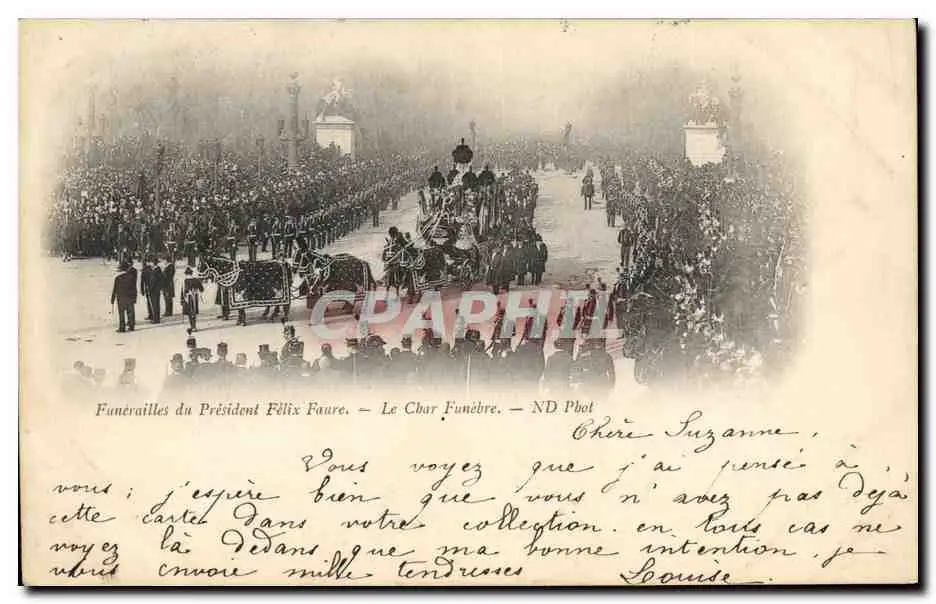 CPAPHIL
Funérailles du Président Félix Faure. — Le Char Funèbre. — ND Phot
Chère Suzanne,
Vous voyez que j'ai pensé à
vous ; j'espère bien que vous n'avez pas déjà
cette carte dans votre collection. en tous cas ne
voyez là dedans que ma bonne intention, je
vous envoie mille tendresses Louise.